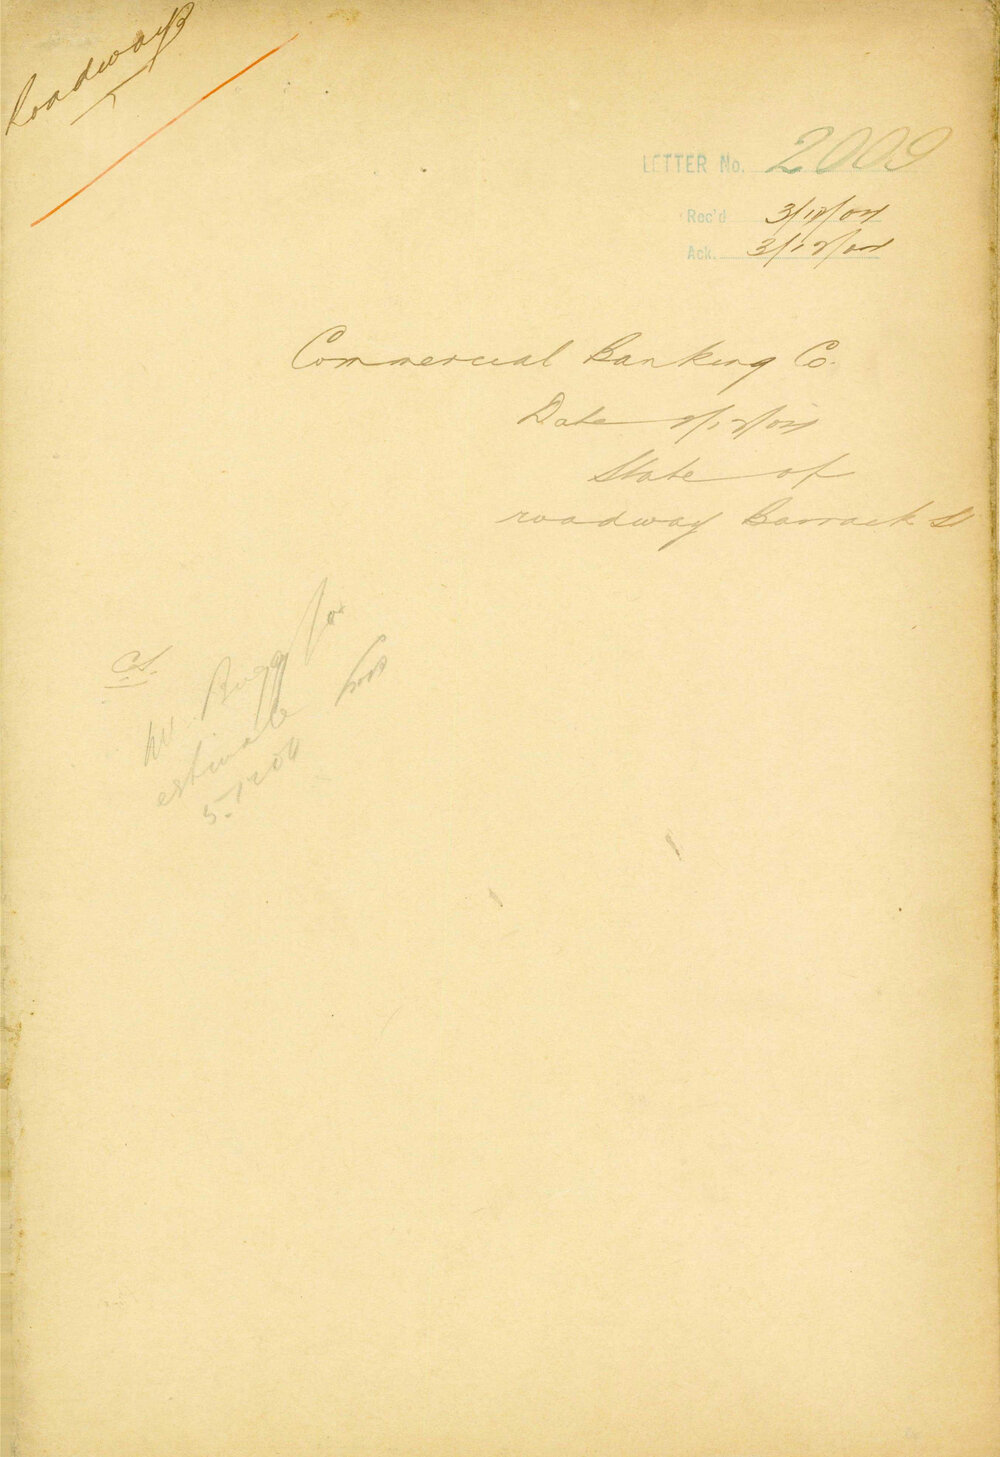 Roadways
LETTER No. 2009
Rec'd 3/12/04
Ack. 3/12/04
Commercial Banking Co.
Date 2/12/04
State of
roadway Barrack St
C.S.
Mr. Bugg for
estimate
5.12.04